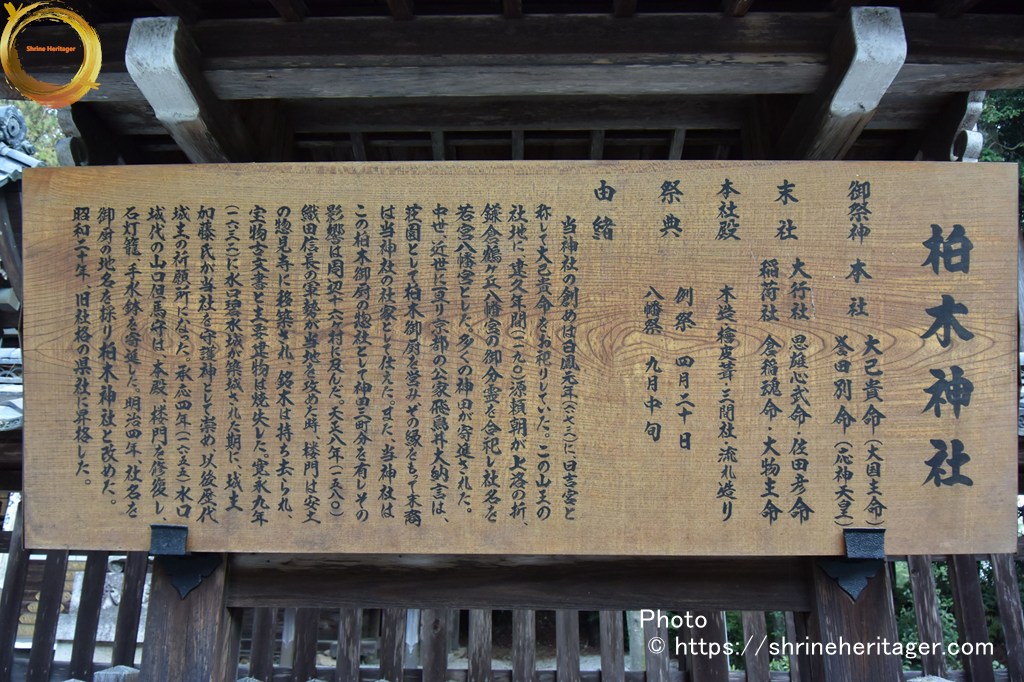 Shrine Heritager
柏木神社
御祭神 本社 大己貴命(大国主命)
誉田別命(応神天皇)
末社 大行社 思雄心武命・佐田彦命
稲荷社 倉稲魂命・大物主命
本社殿 木造・檜皮葺・三間社流れ造り
祭典 例祭 四月二十日
八幡祭 九月中旬
由緒
当神社の創めは白鳳元年(六七二)に日吉宮と
称して大己貴命をお祀りしていた。この山王の
社地に、建久年間(一一九〇)源頼朝が上洛の折、
鎌倉鶴ヶ丘八幡宮の御分霊を合祀し社名を
若宮八幡宮とした。多くの神田が寄進された。
中世、近世に亘り京都の公家飛鳥井大納言は、
荘園として柏木御厨を営みその縁をもって末裔
は当神社の社家として仕えた。また、当神社は
この柏木御厨の惣社として神田三町分を有しその
影響は周辺十六ヶ村に及んだ。天正八年(一五八〇)
織田信長の軍勢が当地を攻めた時、楼門は安土
の惣見寺に移築され、銘木は持ち去られ、
宝物古文書と主要建物は焼失した。寛永九年
(一六三二)に水口碧水城が築城された期に、城主
加藤氏が当社を守護神として崇め、以後歴代
城主の祈願所になった。承応四年(一六五五)水口
城代の山口但馬守は、本殿、楼門を修復し、
石灯籠、手水鉢を寄進した。明治四年、社名を
御厨の地名を採り柏木神社と改めた。
昭和二十年、旧社格の県社に昇格した。
Photo
© https://shrineheritager.com